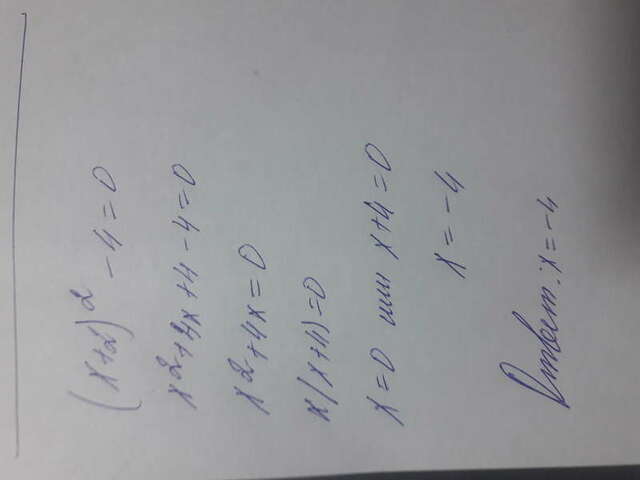 (x+2)² - 4 = 0
x² + 4x + 4 - 4 = 0
x² + 4x = 0
x(x+4) = 0
x = 0 или x+4 = 0
x = -4
Ответ: x = -4